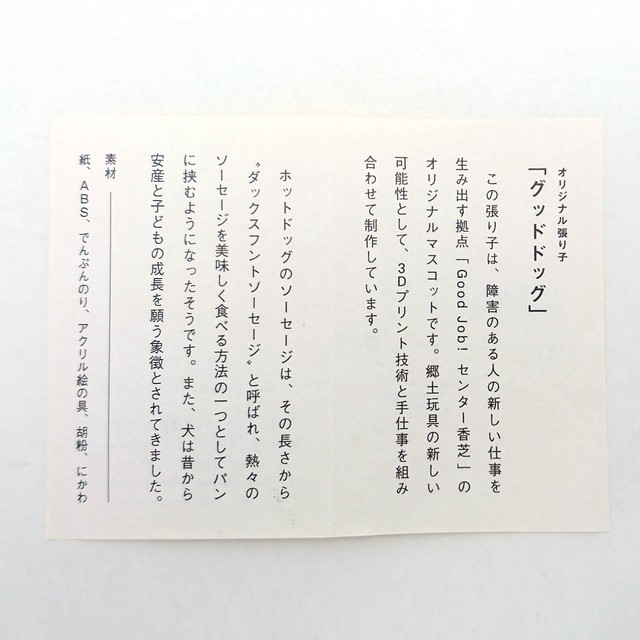 オリジナル張り子
「グッドドッグ」
この張り子は、障害のある人の新しい仕事を
生み出す拠点「Good Job! センター香芝」の
オリジナルマスコットです。郷土玩具の新しい
可能性として、3Dプリント技術と手仕事を組み
合わせて制作しています。
ホットドッグのソーセージは、その長さから
〝ダックスフントソーセージ〟と呼ばれ、熱々の
ソーセージを美味しく食べる方法の一つとしてパン
に挟むようになったそうです。また、犬は昔から
安産と子どもの成長を願う象徴とされてきました。
素材
紙、ABS、でんぷんのり、アクリル絵の具、胡粉、にかわ